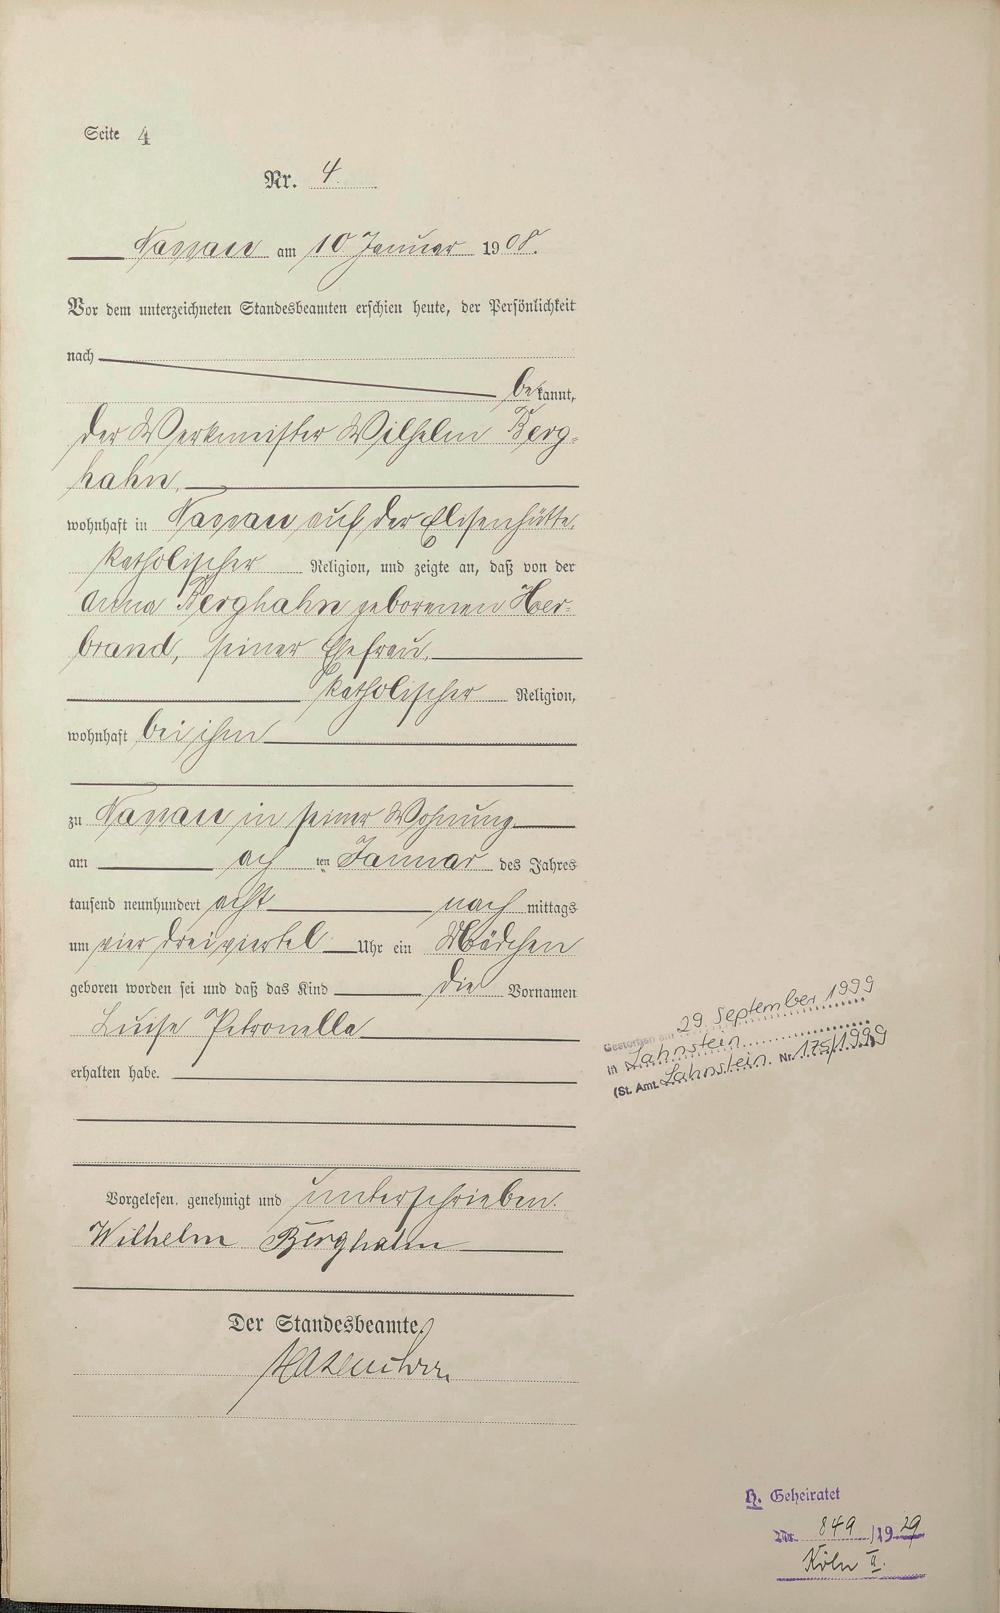 Seite 4
Nr. 4.
Nassau am 10 Januar 1908.
Vor dem unterzeichneten Standesbeamten erschien heute, der Persönlichkeit
nach
bekannt,
der Werkmeister Wilhelm Berg-
hahn,
wohnhaft in Nassau auf der Elisenhütte,
katholischer Religion, und zeigte an, daß von der
Anna Berghahn geborenen Her-
brand, seiner Ehefrau,
katholischer Religion,
wohnhaft bei ihm
zu Nassau in seiner Wohnung
am ach ten Januar des Jahres
tausend neunhundert acht nach mittags
um vier dreiviertel Uhr ein Mädchen
geboren worden sei und daß das Kind die Vornamen
Luise Petronella
erhalten habe.
Vorgelesen, genehmigt und unterschrieben.
Wilhelm Berghahn
Der Standesbeamte.
Gestorben am 29. September 1999
in Lahnstein
(St. Amt Lahnstein Nr. 175/1999)
H. Geheiratet
Nr. 849/1929
Köln II.